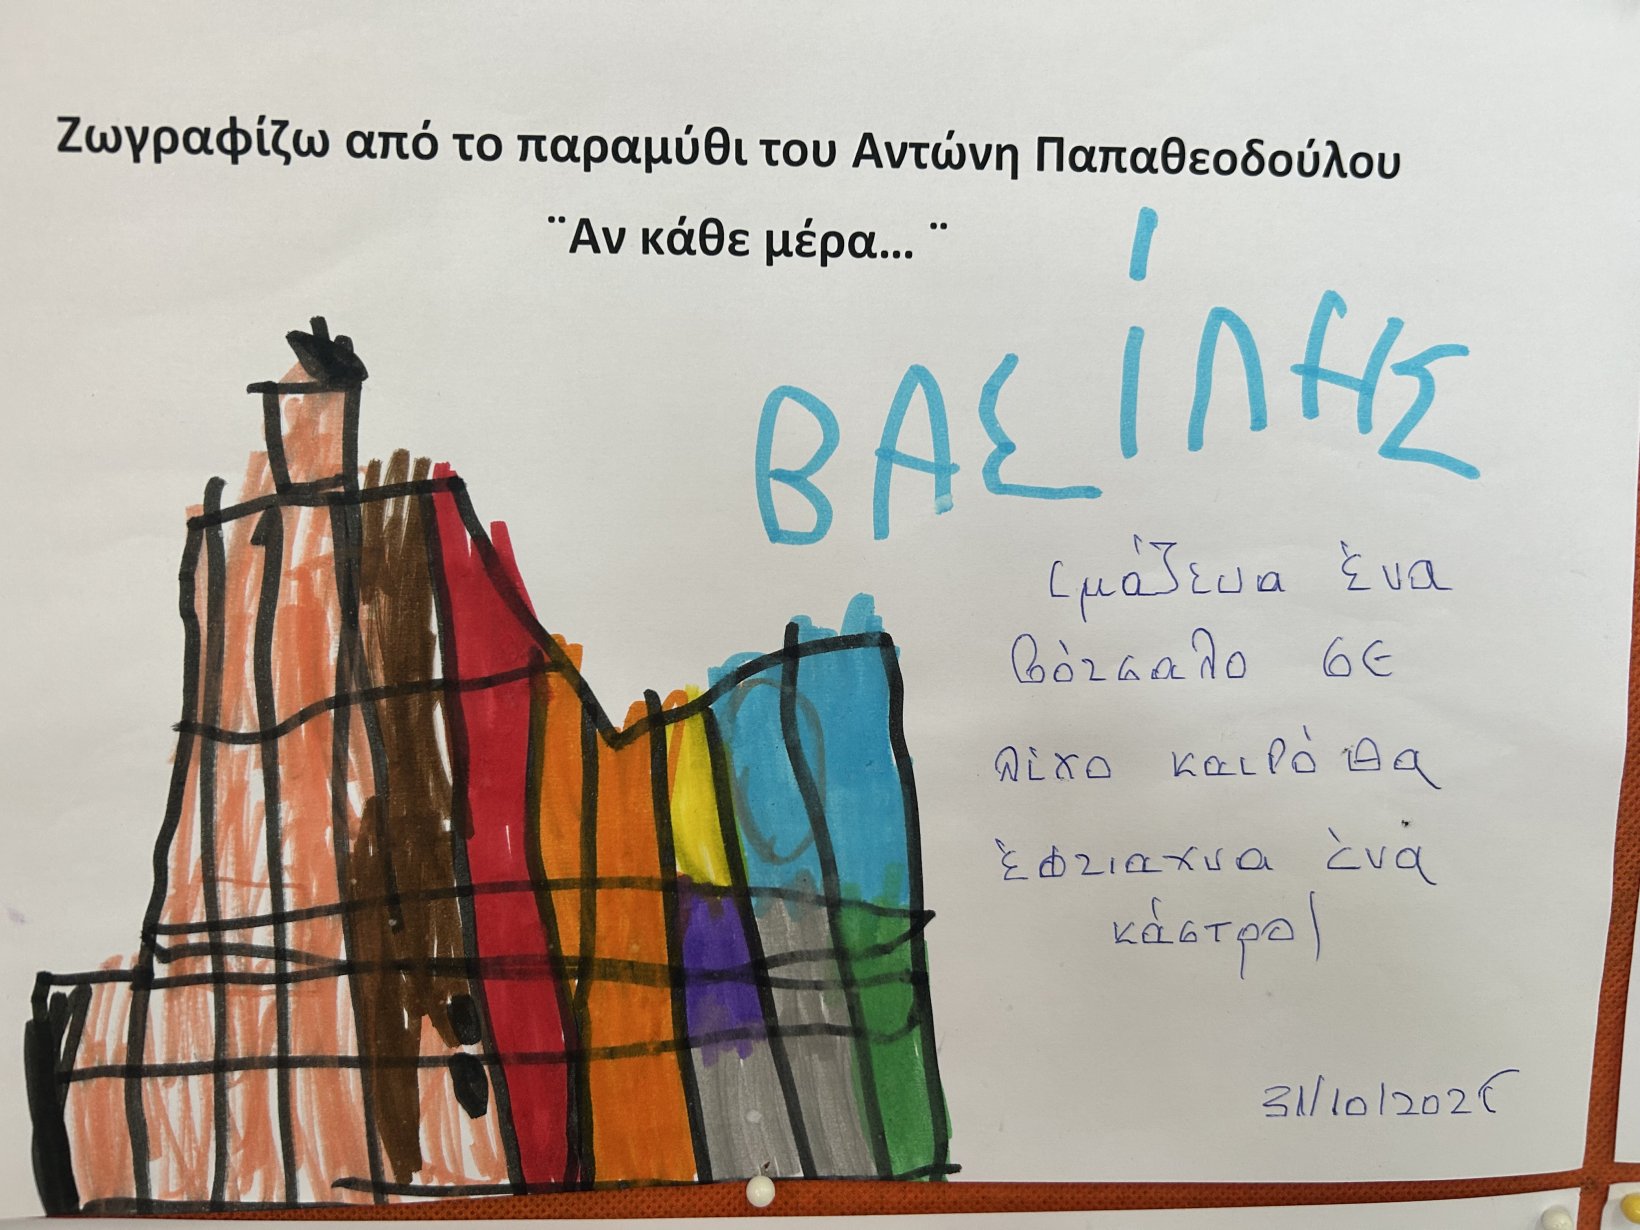 Ζωγραφίζω από το παραμύθι του Αντώνη Παπαθεοδούλου
¨Αν κάθε μέρα... ¨
ΒΑΣΙΛΗΣ
Σμάζευα ένα
βότσαλο σε
λίγο καιρό θα
έφτιαχνα ένα
κάστρο!
31/10/2025